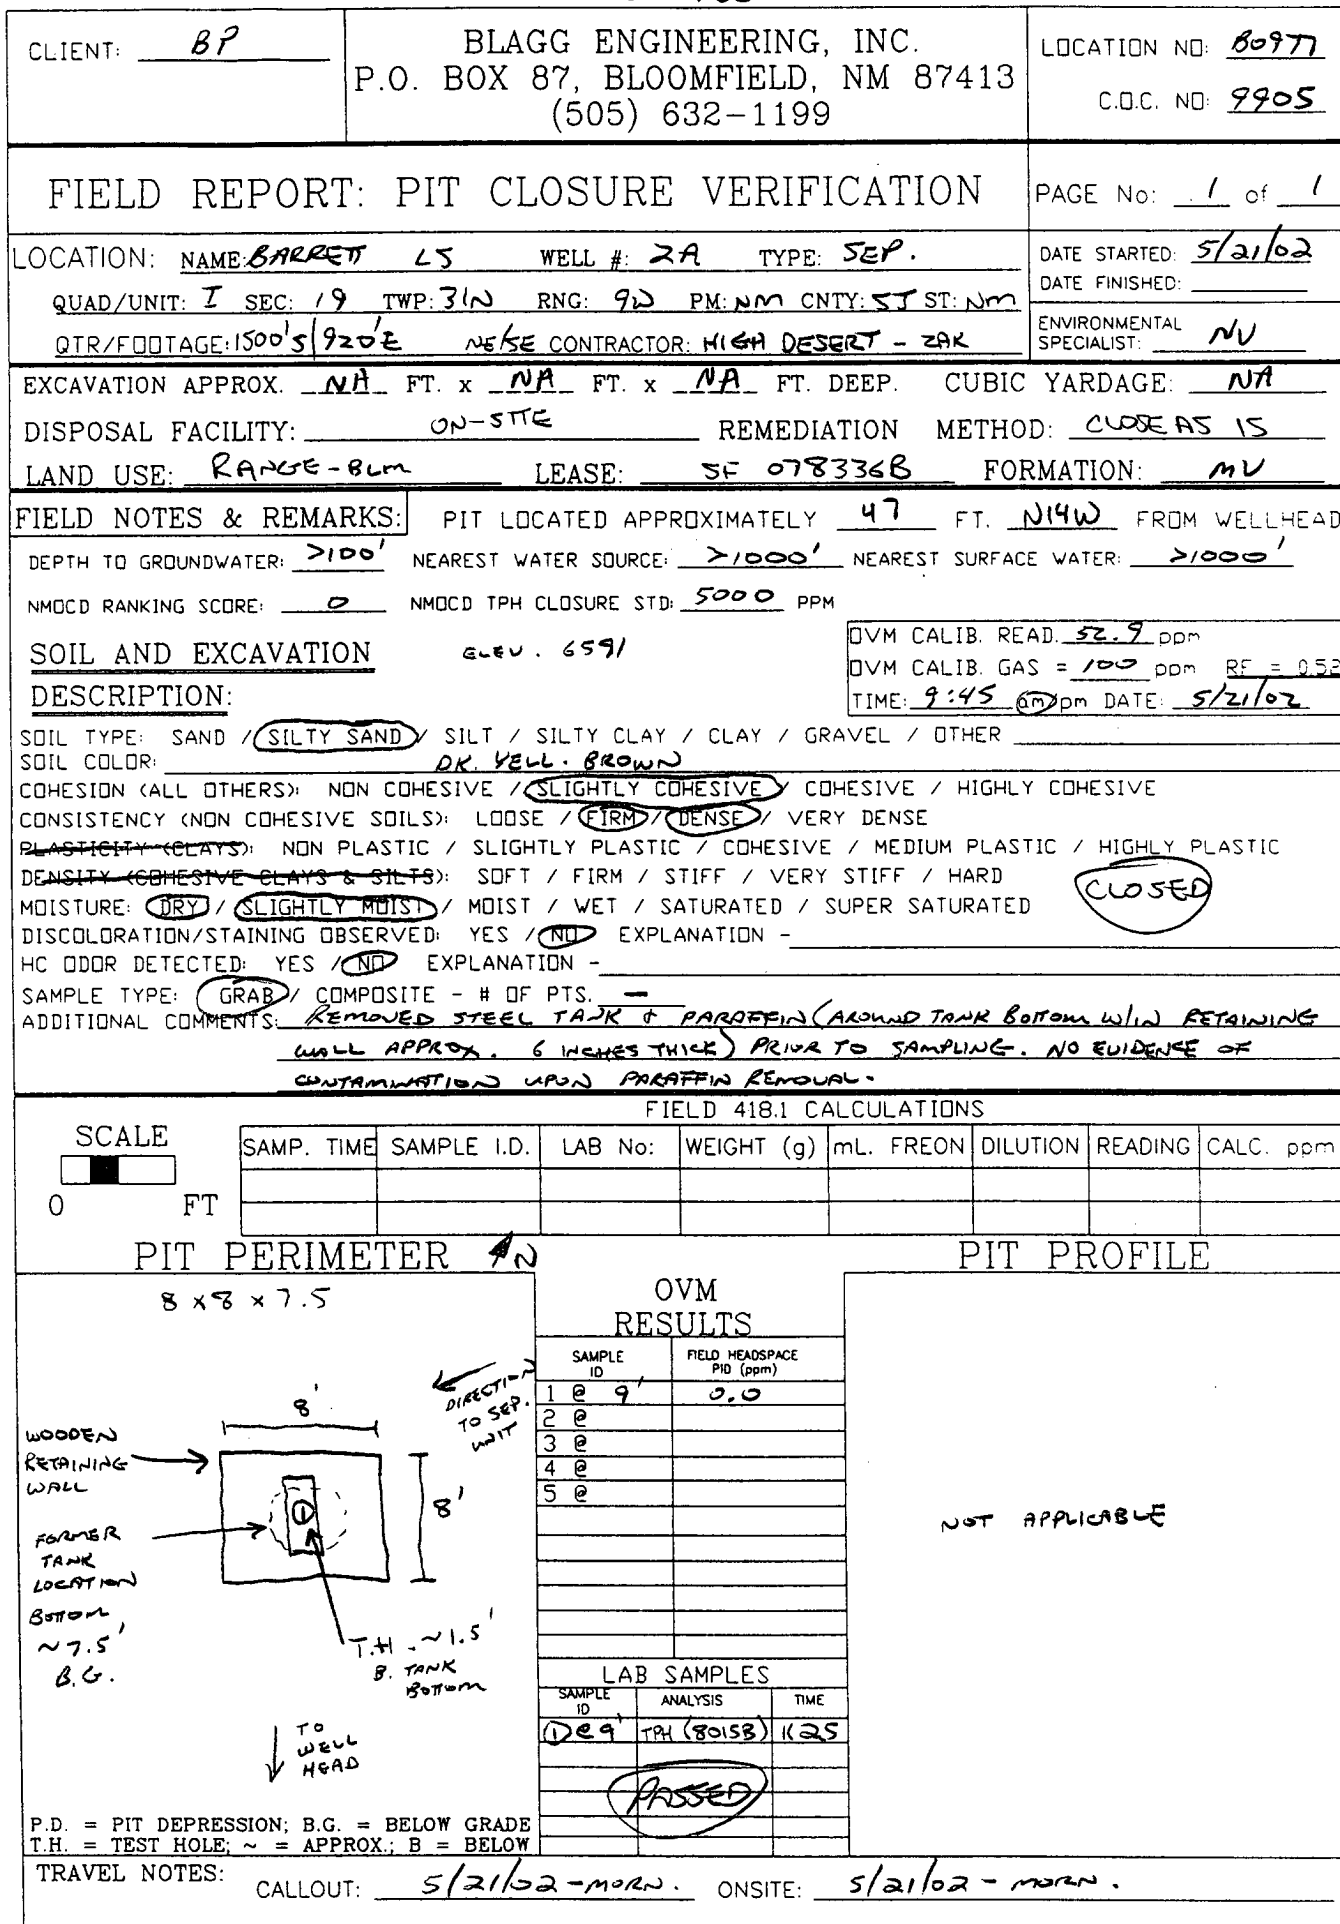 CLIENT: BP
BLAGG ENGINEERING, INC.
P.O. BOX 87, BLOOMFIELD, NM 87413
(505) 632-1199
LOCATION NO: B0977
C.O.C. NO: 9905
FIELD REPORT: PIT CLOSURE VERIFICATION
PAGE No: 1 of 1
LOCATION: NAME: BARRETT LS WELL #: 2A TYPE: SEP.
QUAD/UNIT: I SEC: 19 TWP: 31N RNG: 9W PM: NM CNTY: SJ ST: NM
QTR/FOOTAGE: 1500'S/920'E NE/SE CONTRACTOR: HIGH DESERT - ZAK
DATE STARTED: 5/21/02
DATE FINISHED:
ENVIRONMENTAL SPECIALIST: NV
EXCAVATION APPROX. NA FT. x NA FT. x NA FT. DEEP. CUBIC YARDAGE: NA
DISPOSAL FACILITY: ON-SITE REMEDIATION METHOD: CLOSE AS IS
LAND USE: RANGE-BLM LEASE: SF 078336B FORMATION: MV
FIELD NOTES & REMARKS: PIT LOCATED APPROXIMATELY 47 FT. N14W FROM WELLHEAD
DEPTH TO GROUNDWATER: >100' NEAREST WATER SOURCE: >1000' NEAREST SURFACE WATER: >1000'
NMOCD RANKING SCORE: 0 NMOCD TPH CLOSURE STD: 5000 PPM
SOIL AND EXCAVATION DESCRIPTION:
ELEV. 6591
OVM CALIB. READ. 52.9 ppm
OVM CALIB. GAS = 100 ppm RF = 0.52
TIME: 9:45 am/pm DATE: 5/21/02
SOIL TYPE: SAND / SILTY SAND / SILT / SILTY CLAY / CLAY / GRAVEL / OTHER
SOIL COLOR: DK. YELL. BROWN
COHESION (ALL OTHERS): NON COHESIVE / SLIGHTLY COHESIVE / COHESIVE / HIGHLY COHESIVE
CONSISTENCY (NON COHESIVE SOILS): LOOSE / FIRM / DENSE / VERY DENSE
PLASTICITY (CLAYS): NON PLASTIC / SLIGHTLY PLASTIC / COHESIVE / MEDIUM PLASTIC / HIGHLY PLASTIC
DENSITY (COHESIVE CLAYS & SILTS): SOFT / FIRM / STIFF / VERY STIFF / HARD
CLOSED
MOISTURE: DRY / SLIGHTLY MOIST / MOIST / WET / SATURATED / SUPER SATURATED
DISCOLORATION/STAINING OBSERVED: YES / NO EXPLANATION -
HC ODOR DETECTED: YES / NO EXPLANATION -
SAMPLE TYPE: GRAB / COMPOSITE - # OF PTS. —
ADDITIONAL COMMENTS: REMOVED STEEL TANK & PARAFFIN (AROUND TANK BOTTOM W/IN RETAINING
WALL APPROX. 6 INCHES THICK) PRIOR TO SAMPLING. NO EVIDENCE OF
CONTAMINATION UPON PARAFFIN REMOVAL.
FIELD 418.1 CALCULATIONS
SCALE
0 FT
SAMP. TIME SAMPLE I.D. LAB No: WEIGHT (g) mL. FREON DILUTION READING CALC. ppm
PIT PERIMETER N
8 x 8 x 7.5
8'
WOODEN
RETAINING
WALL
8'
FORMER
TANK
LOCATION
BOTTOM
~7.5'
B.G.
T.H. ~1.5'
B. TANK
BOTTOM
DIRECTION
TO SEP.
UNIT
TO
WELL
HEAD
P.D. = PIT DEPRESSION; B.G. = BELOW GRADE
T.H. = TEST HOLE; ~ = APPROX.; B = BELOW
OVM
RESULTS
SAMPLE ID FIELD HEADSPACE PID (ppm)
1 @ 9' 0.0
2 @
3 @
4 @
5 @
LAB SAMPLES
SAMPLE ID ANALYSIS TIME
① @ 9' TPH (8015B) 1025
PASSED
PIT PROFILE
NOT APPLICABLE
TRAVEL NOTES: CALLOUT: 5/21/02 - MORN. ONSITE: 5/21/02 - MORN.